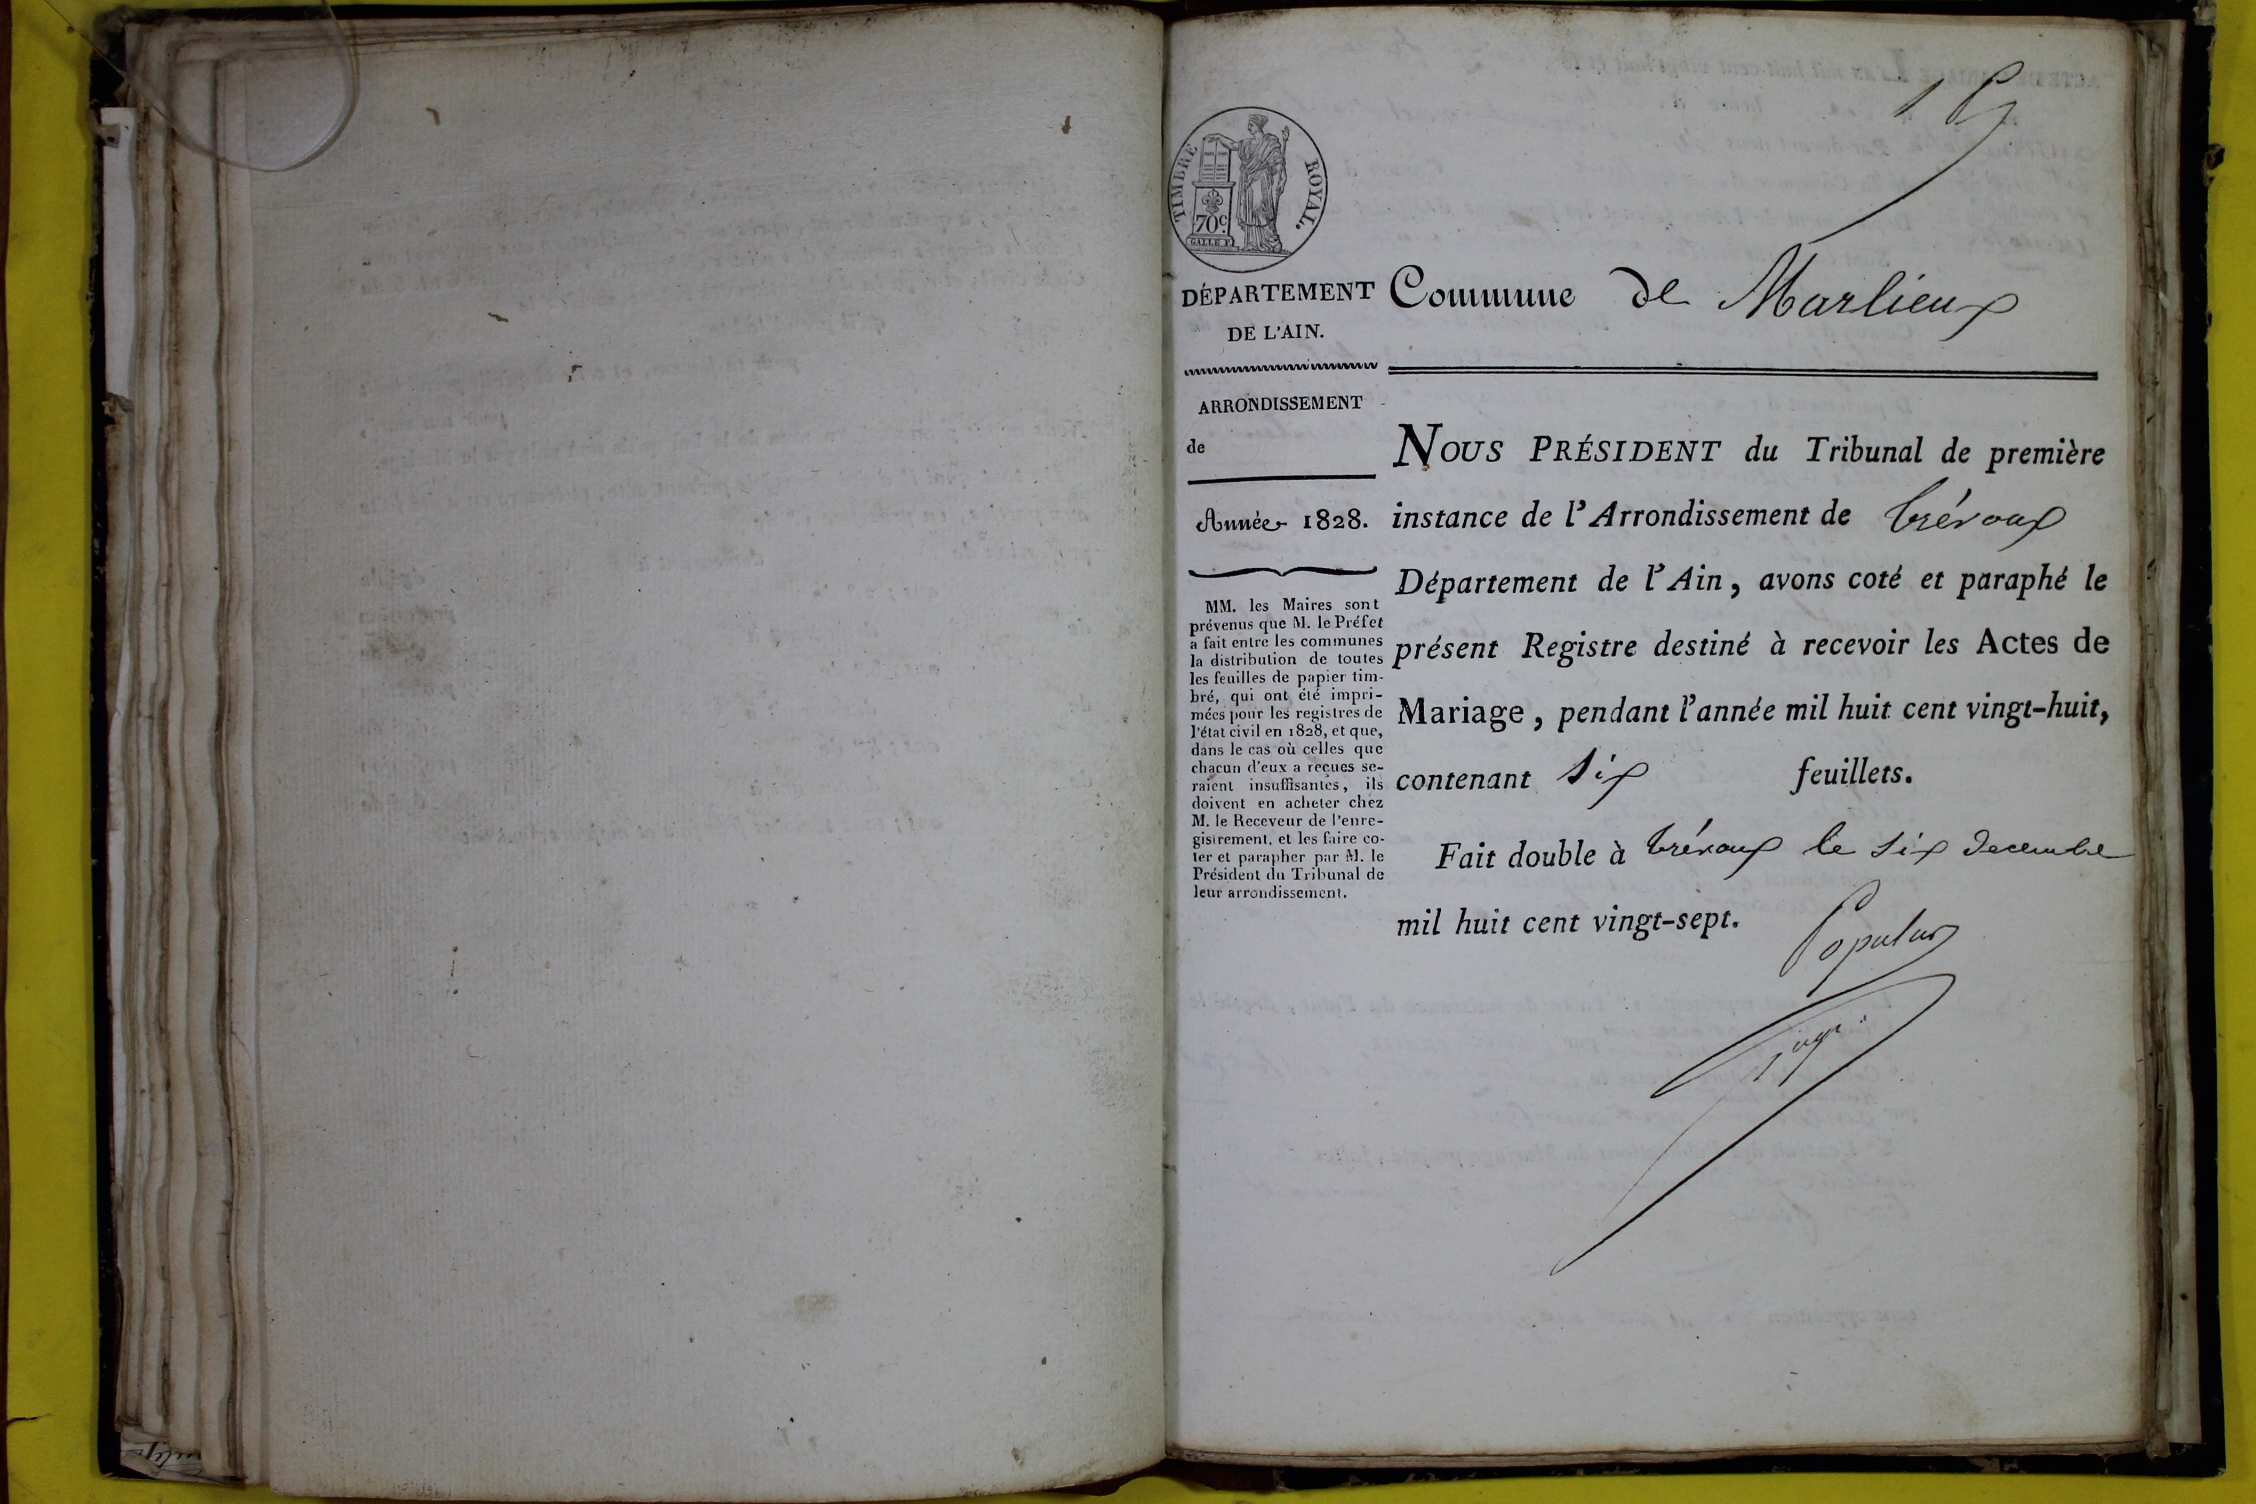 TIMBRE ROYAL.
70c.
GALLE F.
DÉPARTEMENT
DE L'AIN.
ARRONDISSEMENT
de
Année 1828.
MM. les Maires sont
prévenus que M. le Préfet
a fait entre les communes
la distribution de toutes
les feuilles de papier tim-
bré, qui ont été impri-
mées pour les registres de
l'état civil en 1828, et que,
dans le cas où celles que
chacun d'eux a reçues se-
raient insuffisantes, ils
doivent en acheter chez
M. le Receveur de l'enre-
gistrement, et les faire co-
ter et parapher par M. le
Président du Tribunal de
leur arrondissement.
Commune de Marlieux
NOUS PRÉSIDENT du Tribunal de première
instance de l'Arrondissement de trévoux
Département de l'Ain, avons coté et paraphé le
présent Registre destiné à recevoir les Actes de
Mariage, pendant l'année mil huit cent vingt-huit,
contenant six feuillets.
Fait double à trévoux le six decembre
mil huit cent vingt-sept.
Populus